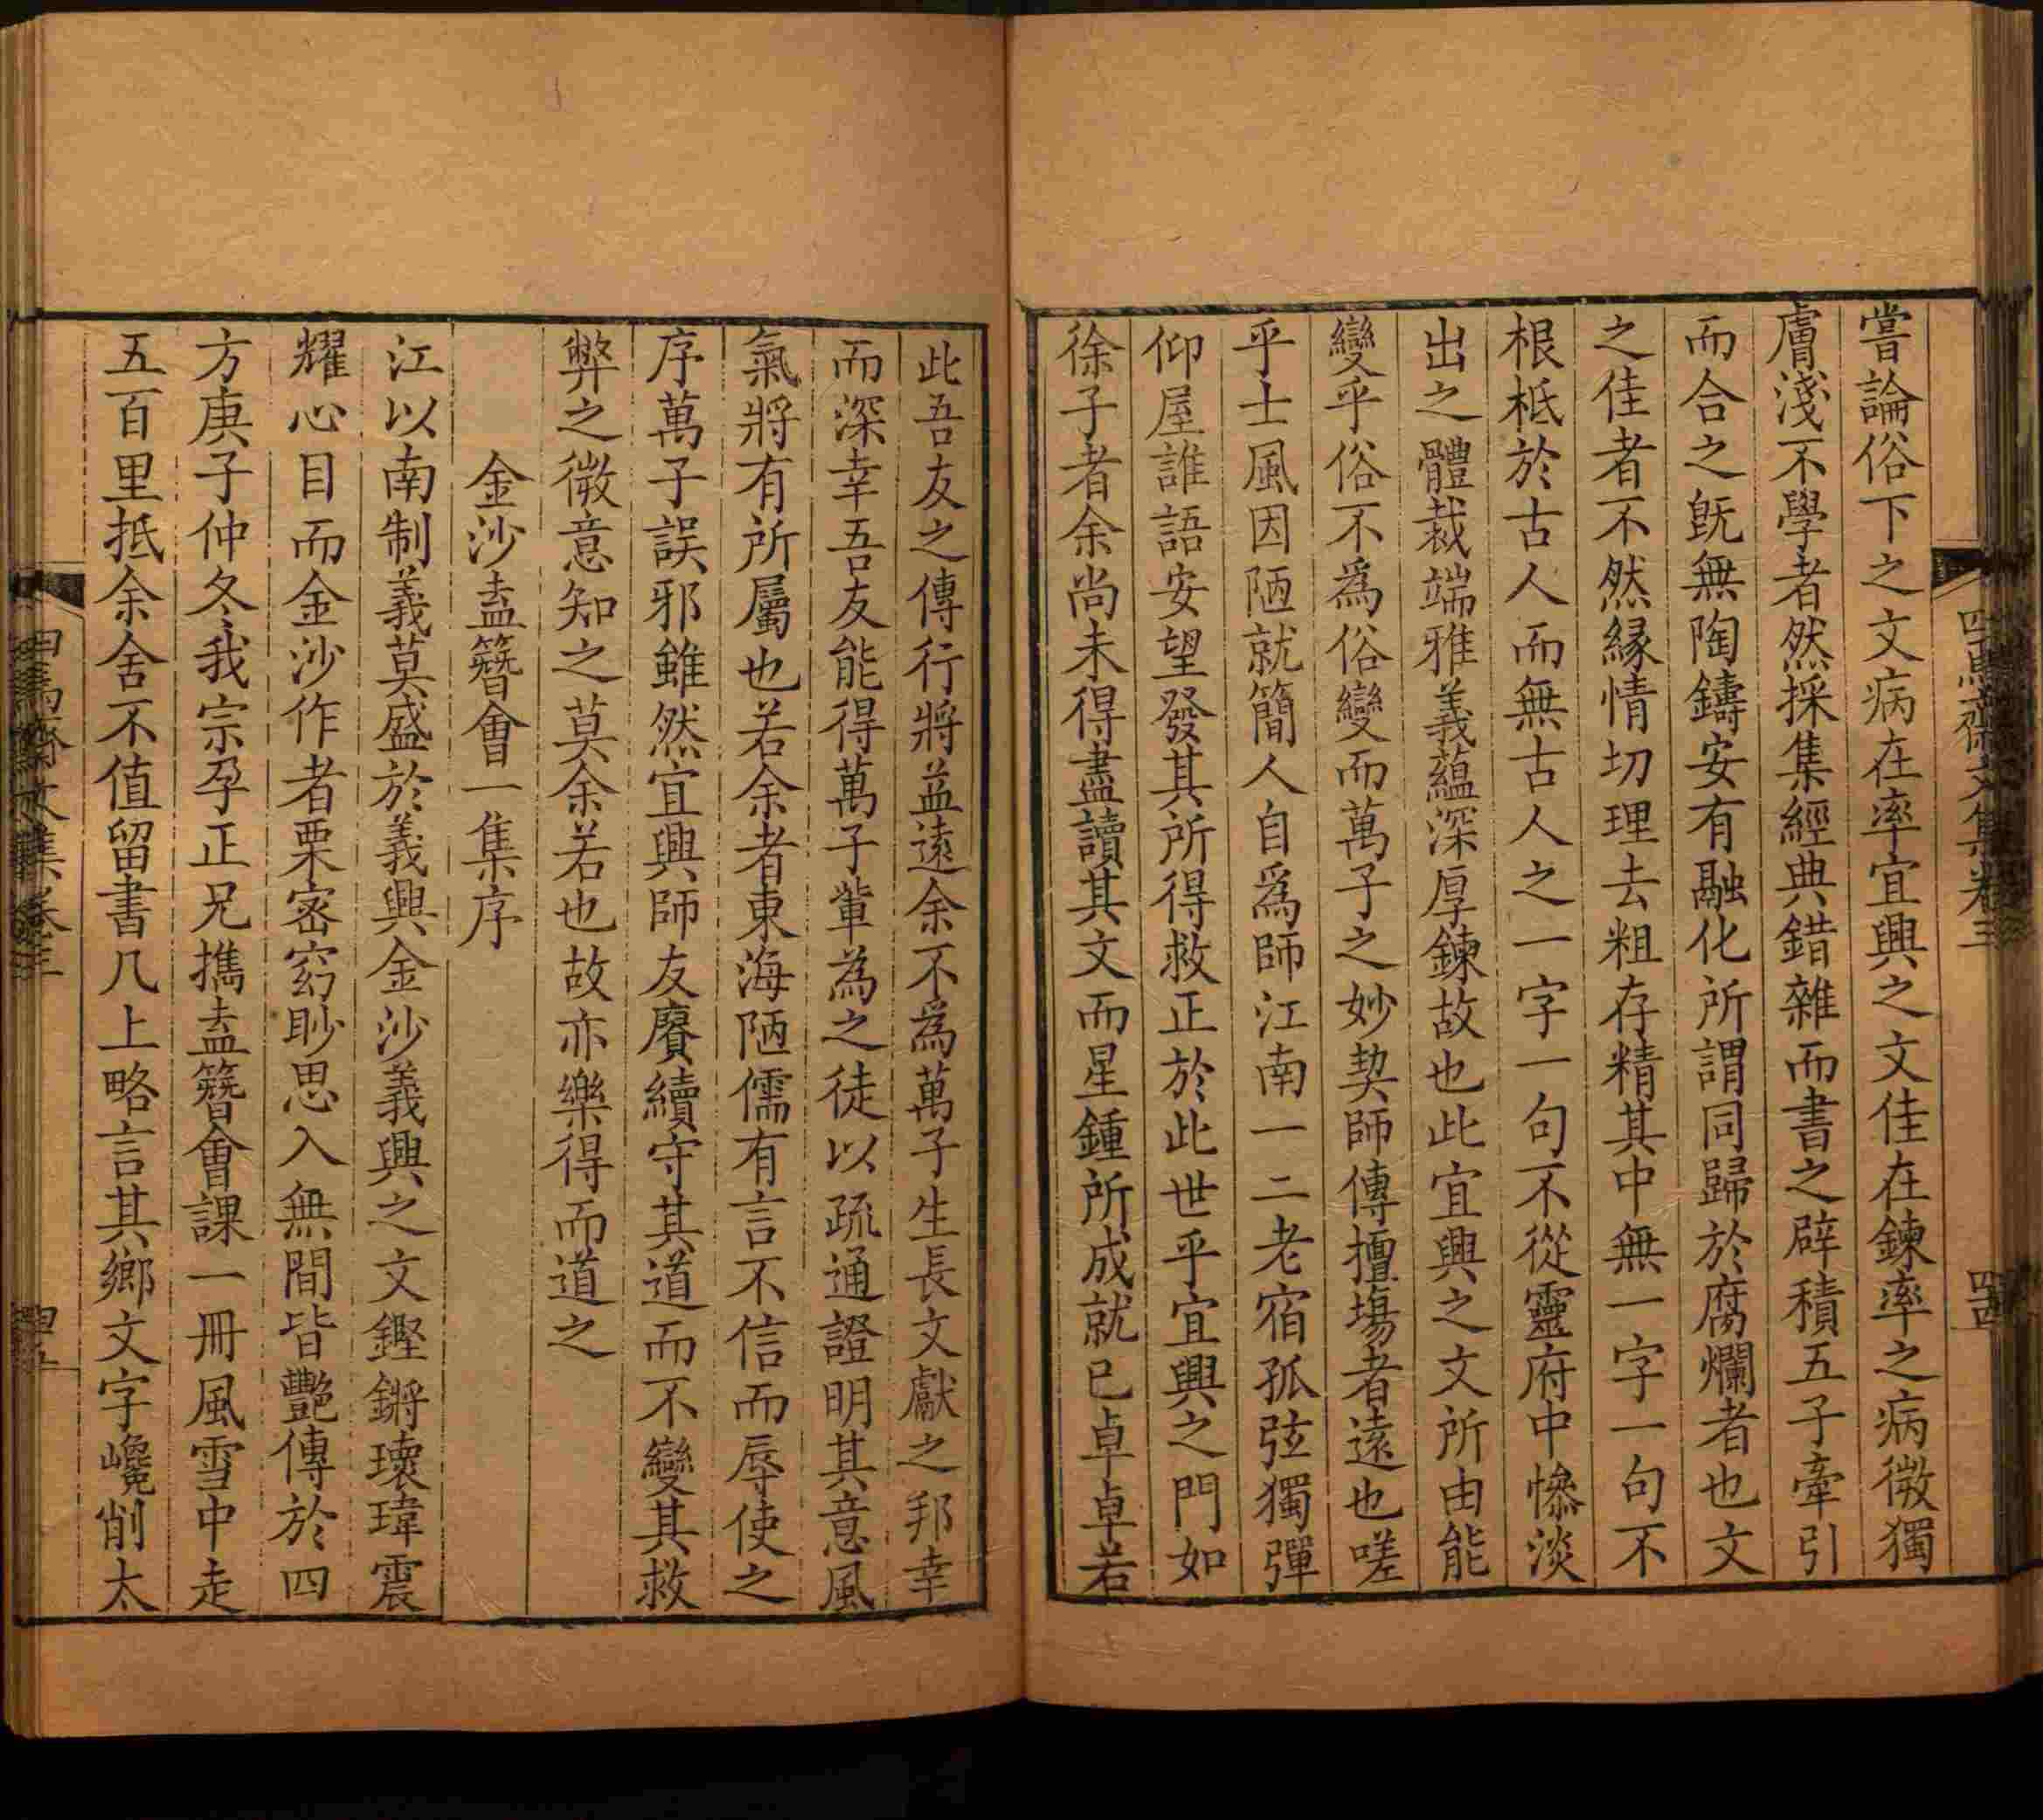 嘗論俗下之文病在率宜興之文佳在鍊率之病微獨
膚淺不學者然採集經典錯雜而書之辟積五子牽引
而合之既無陶鑄安有融化所謂同歸於腐爛者也文
之佳者不然緣情切理去粗存精其中無一字一句不
根柢於古人而無古人之一字一句不從靈府中慘淡
出之體裁端雅義蘊深厚鍊故也此宜興之文所由能
變乎俗不爲俗變而萬子之妙契師傳擅場者遠也嗟
乎士風因陋就簡人自爲師江南一二老宿孤弦獨彈
仰屋誰語安望發其所得救正於此世乎宜興之門如
徐子者余尚未得盡讀其文而星鍾所成就已卓卓若
此吾友之傳行將益遠余不爲萬子生長文獻之邦幸
而深幸吾友能得萬子輩為之徒以疏通證明其意風
氣將有所屬也若余者東海陋儒有言不信而辱使之
序萬子誤邪雖然宜興師友賡續守其道而不變其救
弊之微意知之莫余若也故亦樂得而道之
金沙盍簪會一集序
江以南制義莫盛於義興金沙義興之文鏗鏘瓌瑋震
耀心目而金沙作者栗密窈眇思入無間皆艷傳於四
方庚子仲冬我宗孕正兄攜盍簪會課一冊風雪中走
五百里抵余舍不值留書几上略言其鄉文字巉削太